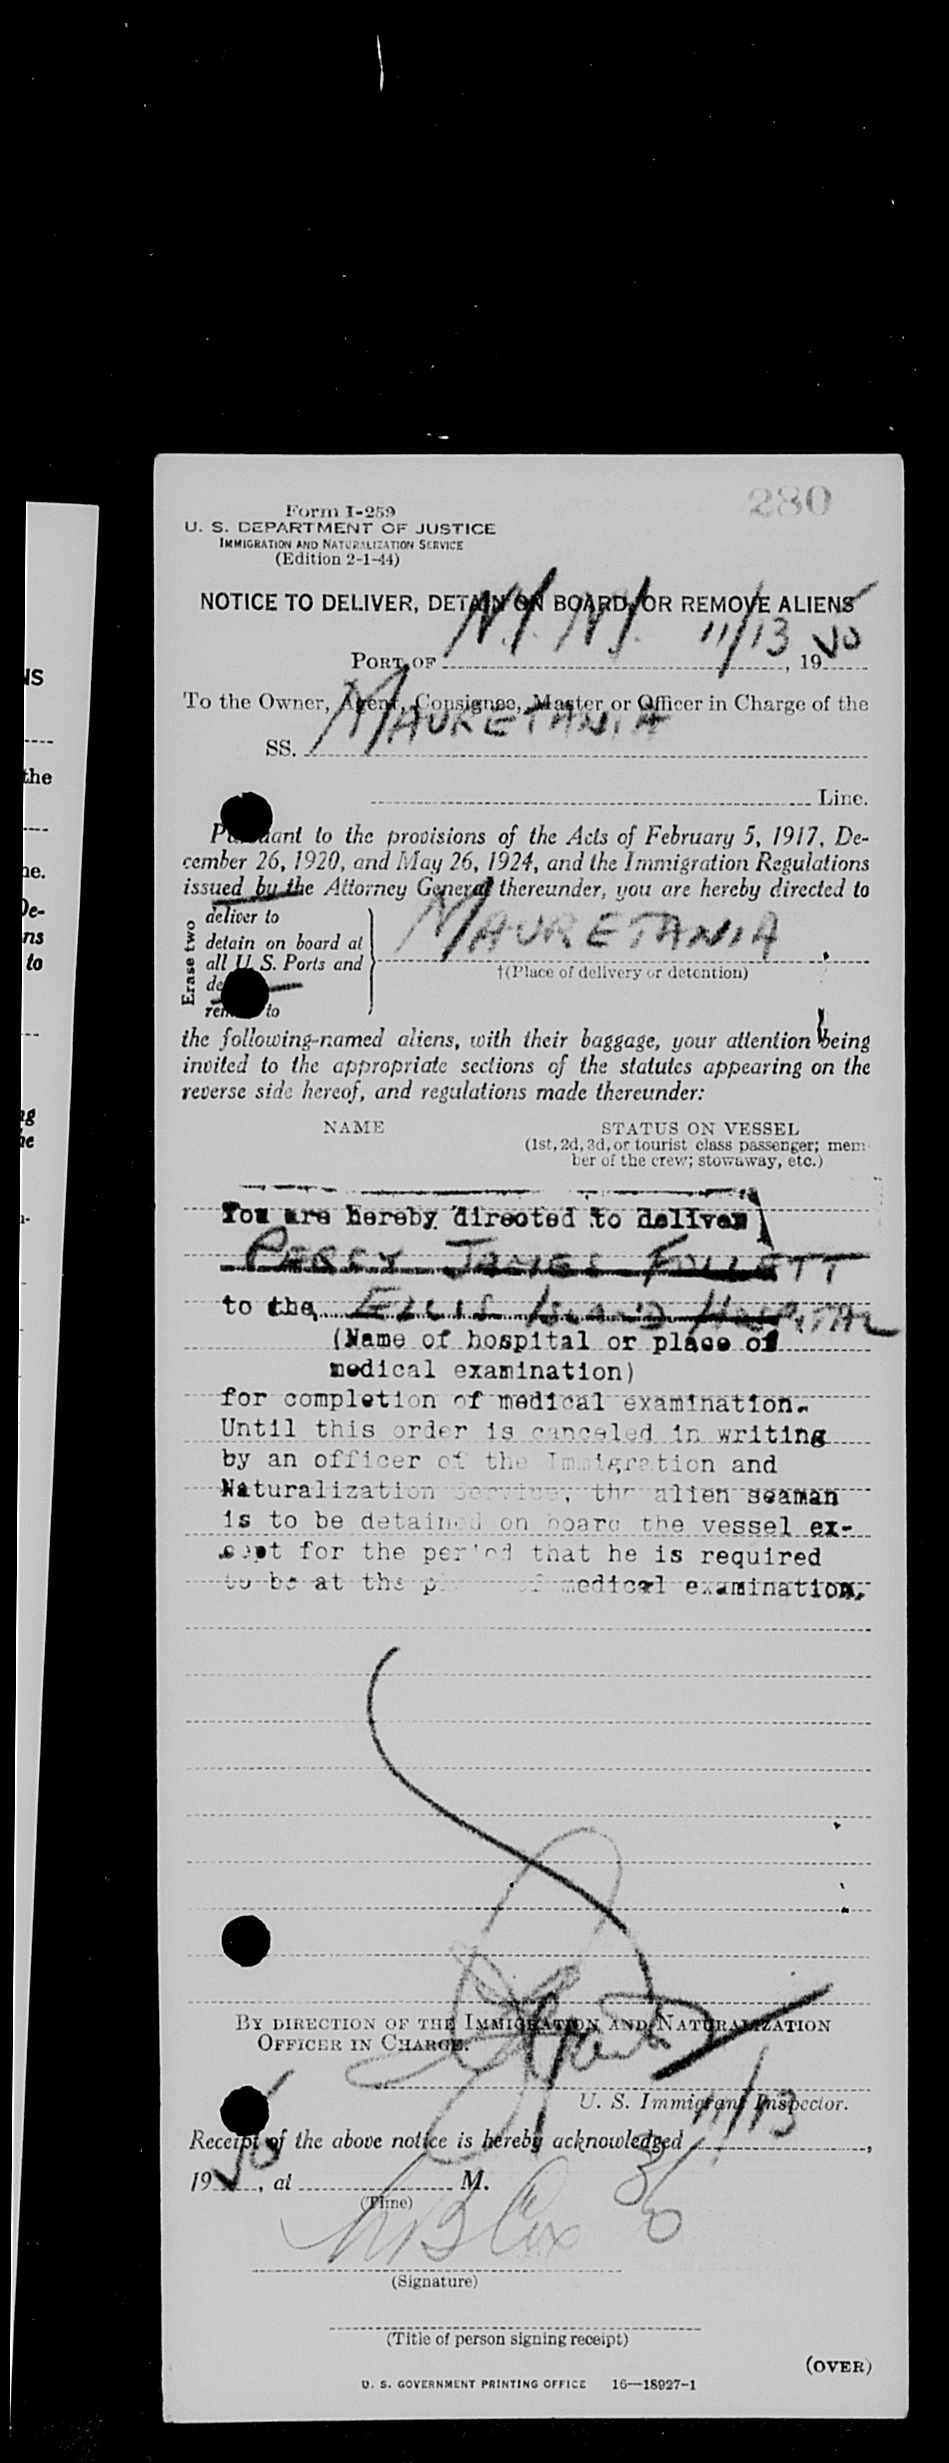 280
Form I-259
U. S. DEPARTMENT OF JUSTICE
IMMIGRATION AND NATURALIZATION SERVICE
(Edition 2-1-44)
NOTICE TO DELIVER, DETAIN ON BOARD, OR REMOVE ALIENS
PORT OF N.Y. N.Y. 11/13, 1950
To the Owner, Agent, Consignee, Master or Officer in Charge of the
SS. MAURETANIA
Line.
Pursuant to the provisions of the Acts of February 5, 1917, De-
cember 26, 1920, and May 26, 1924, and the Immigration Regulations
issued by the Attorney General thereunder, you are hereby directed to
Erase two
deliver to
detain on board at
all U. S. Ports and
MAURETANIA
†(Place of delivery or detention)
remove to
the following-named aliens, with their baggage, your attention being
invited to the appropriate sections of the statutes appearing on the
reverse side hereof, and regulations made thereunder:
NAME
STATUS ON VESSEL
(1st, 2d, 3d, or tourist class passenger; mem-
ber of the crew; stowaway, etc.)
You are hereby directed to deliver
PERCY JAMES FOLLETT
to the ELLIS ISLAND HOSPITAL
(Name of hospital or place of
medical examination)
for completion of medical examination.
Until this order is canceled in writing
by an officer of the Immigration and
Naturalization Service, the alien seaman
is to be detained on board the vessel ex-
cept for the period that he is required
to be at the place of medical examination.
BY DIRECTION OF THE IMMIGRATION AND NATURALIZATION
OFFICER IN CHARGE.
U. S. Immigrant Inspector.
Receipt of the above notice is hereby acknowledged 11/13,
1950, at M.
(Time)
Cox
(Signature)
(Title of person signing receipt)
(OVER)
U. S. GOVERNMENT PRINTING OFFICE 16—18927-1